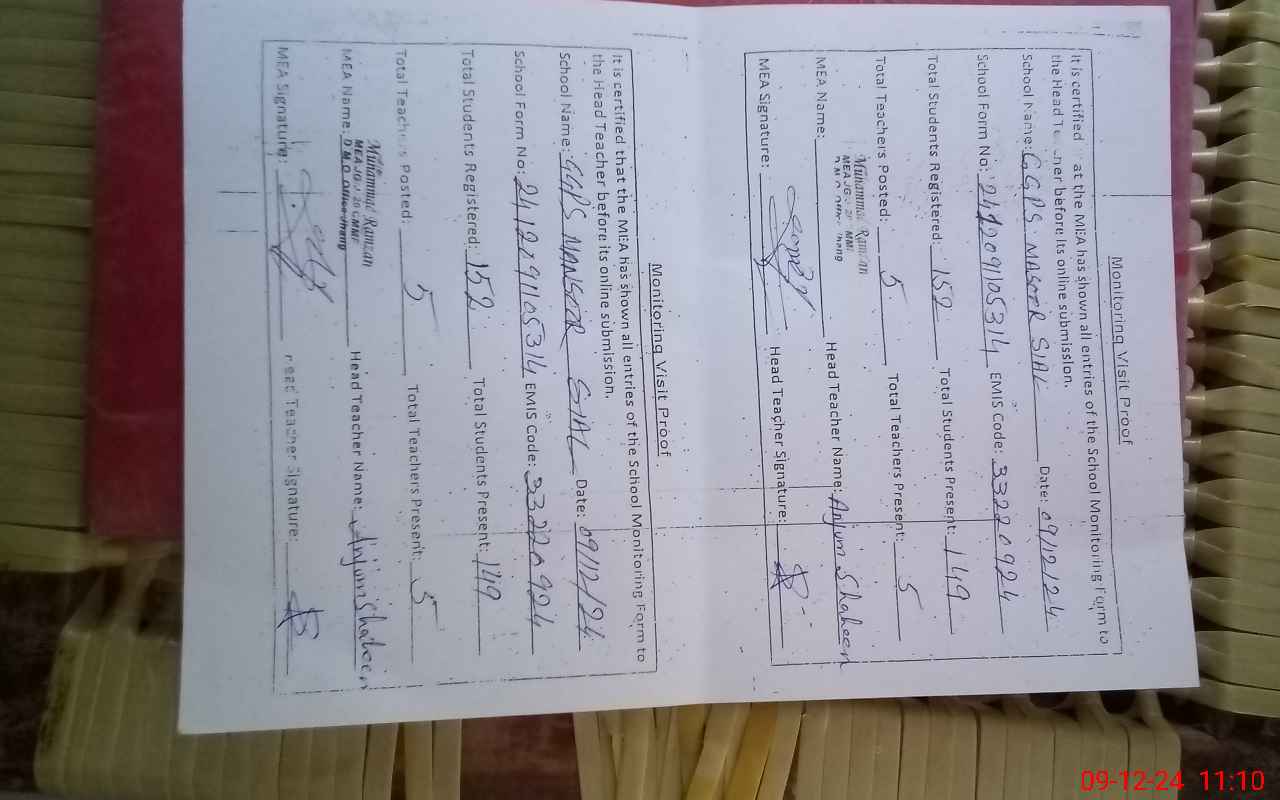 Monitoring Visit Proof
It is certified at the MEA has shown all entries of the School Monitoring Form to
the Head before its online submission.
School Name: G.G.P.S MASOR SIAL Date: 09/12/24
School Form No: 241209105314 EMIS Code: 33220924
Total Students Registered: 152 Total Students Present: 149
Total Teachers Posted: 5 Total Teachers Present: 5
Muhammad Ramzan
MEA Name: Head Teacher Name: Anjum Shaheen
MEA Signature: Head Teacher Signature:
Monitoring Visit Proof
It is certified that the MEA has shown all entries of the School Monitoring Form to
the Head Teacher before its online submission.
School Name: GGPS MANSOR SIAL Date: 09/12/24
School Form No: 241209105314 EMIS Code: 33220924
Total Students Registered: 152 Total Students Present: 149
Total Teachers Posted: 5 Total Teachers Present: 5
Muhammad Ramzan
MEA Name: D M O Office Jhang Head Teacher Name: Anjum Shaheen
MEA Signature: Head Teacher Signature:
09-12-24 11:10